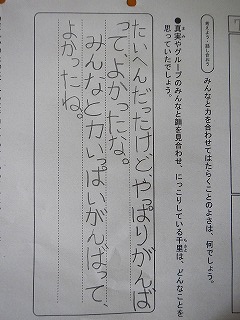 考えよう・話し合おう
みんなと力を合わせてはたらくことのよさは、何でしょう。
●真実やグループのみんなと顔を見合わせ、にっこりしている千里は、どんなことを
思っていたでしょう。
たいへんだったけど、やっぱりがんば
ってよかったな。
みんなと力いっぱいがんばって、
よかったね。